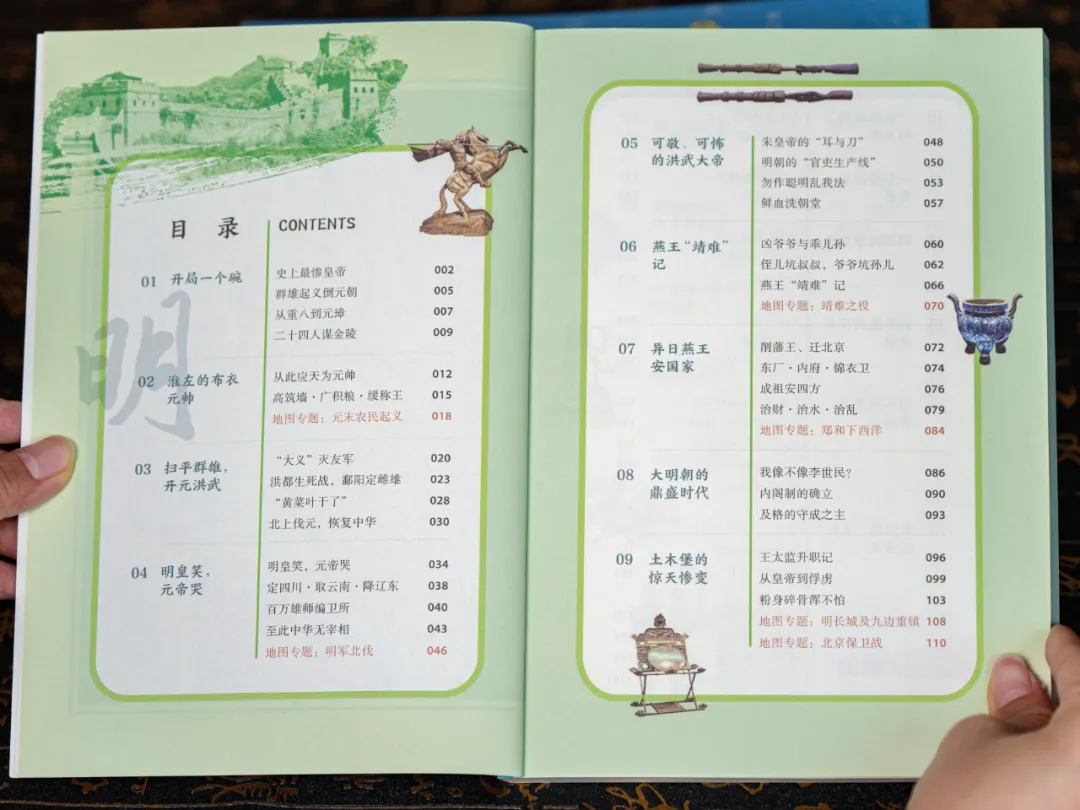 目 录 CONTENTS
01 开局一个碗
史上最惨皇帝 002
群雄起义倒元朝 005
从重八到元璋 007
二十四人谋金陵 009
明
02 淮左的布衣
元帅
从此应天为元帅 012
高筑墙·广积粮·缓称王 015
地图专题：元末农民起义 018
03 扫平群雄，
开元洪武
“大义”灭友军 020
洪都生死战，鄱阳定雌雄 023
“黄菜叶干了” 028
北上伐元，恢复中华 030
04 明皇笑，
元帝哭
明皇笑，元帝哭 034
定四川·取云南·降辽东 038
百万雄师编卫所 040
至此中华无宰相 043
地图专题：明军北伐 046
05 可敬、可怖
的洪武大帝
朱皇帝的“耳与刀” 048
明朝的“官吏生产线” 050
勿作聪明乱我法 053
鲜血洗朝堂 057
06 燕王“靖难”
记
凶爷爷与乖儿孙 060
侄儿坑叔叔，爷爷坑孙儿 062
燕王“靖难”记 066
地图专题：靖难之役 070
07 异日燕王
安国家
削藩王、迁北京 072
东厂·内府·锦衣卫 074
成祖安四方 076
治财·治水·治乱 079
地图专题：郑和下西洋 084
08 大明朝的
鼎盛时代
我像不像李世民？ 086
内阁制的确立 090
及格的守成之主 093
09 土木堡的
惊天惨变
王太监升职记 096
从皇帝到俘虏 099
粉身碎骨浑不怕 103
地图专题：明长城及九边重镇 108
地图专题：北京保卫战 110